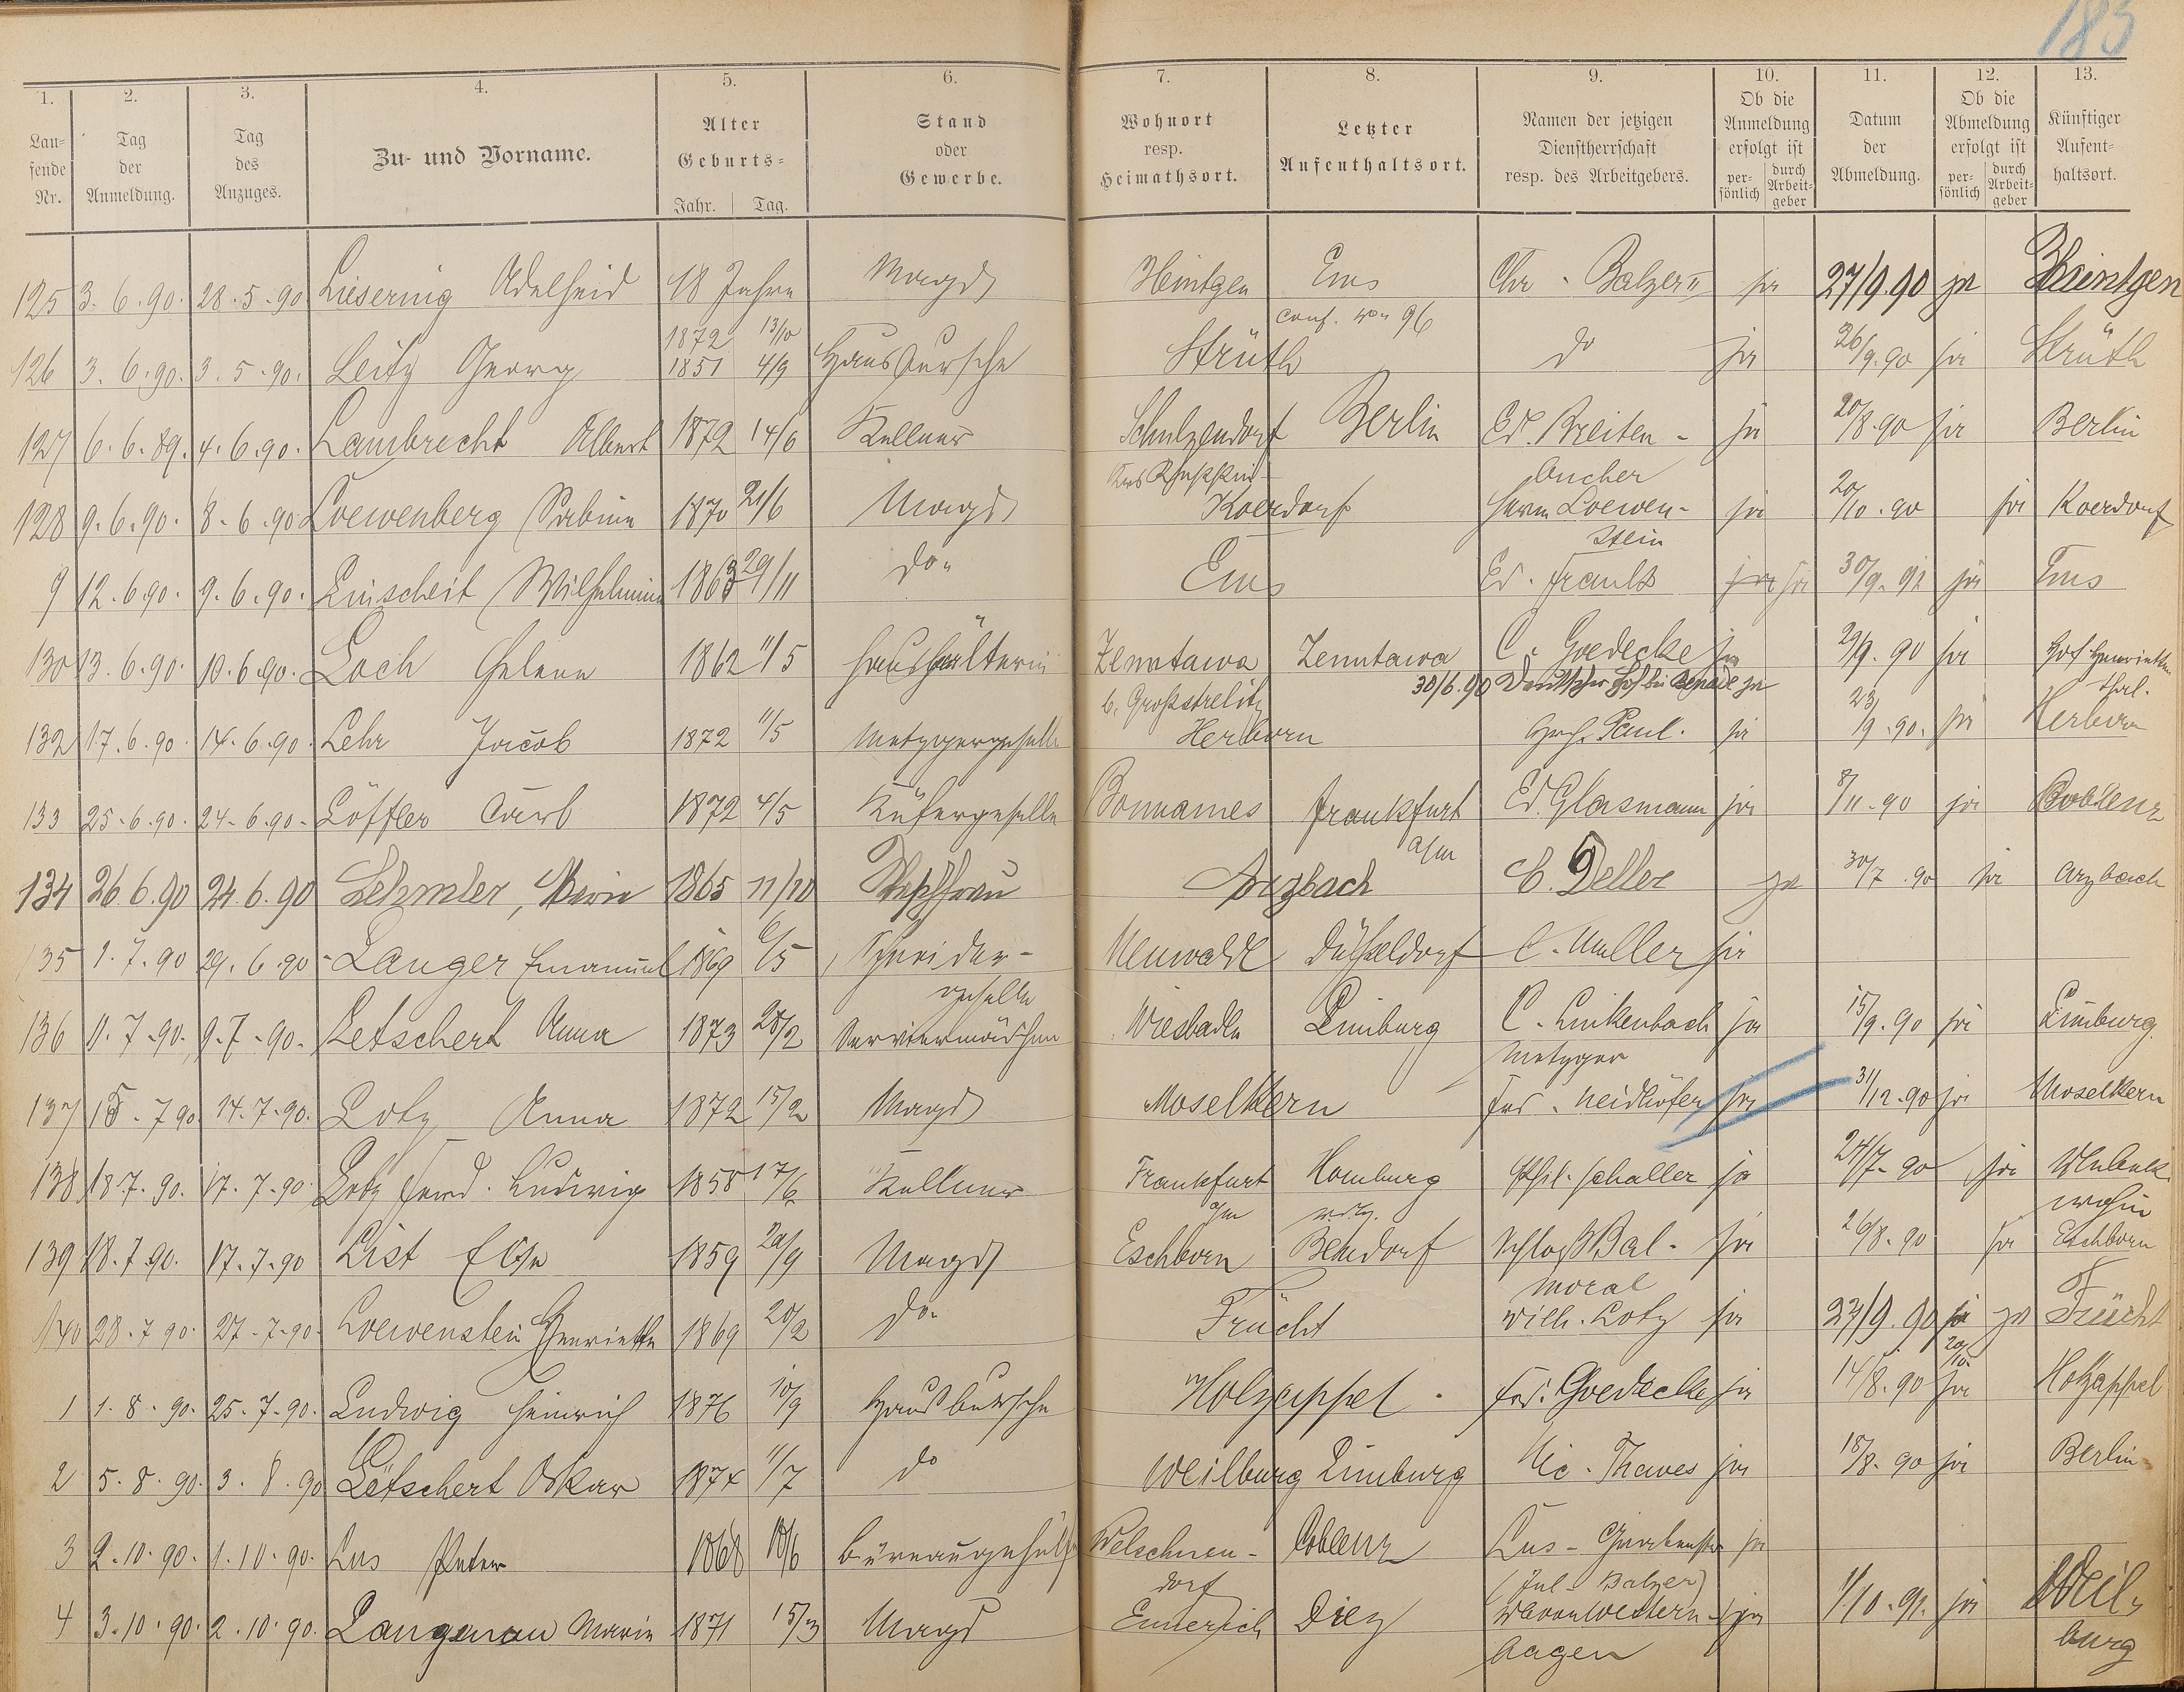 183
1. 2. 3. 4. 5. 6. 7. 8. 9. 10. 11. 12. 13.
Lau-
fende
Nr.
Tag
der
Anmeldung.
Tag
des
Anzuges.
Zu- und Vorname.
Alter
Geburts-
Jahr. Tag.
Stand
oder
Gewerbe.
Wohnort
resp.
Heimathsort.
Letzter
Aufenthaltsort.
Namen der jetzigen
Dienstherrschaft
resp. des Arbeitgebers.
Ob die
Anmeldung
erfolgt ist
per-
sönlich
durch
Arbeit-
geber
Datum
der
Abmeldung.
Ob die
Abmeldung
erfolgt ist
per-
sönlich
durch
Arbeit-
geber
Künftiger
Aufent-
haltsort.
125 3. 6. 90. 28. 5. 90 Liesering Adelheid 18 Jahre Magd Heintgen Ems Chr. Balzer II ja 27/9.90 ja Haintgen
1872 13/10 conf. 96
126 3. 6. 90. 3. 5. 90. Leitz Georg 1851 4/9 Hausbursche Strüth do ja 26/9.90 ja Strüth
127 6. 6. 89. 4. 6. 90. Lambrecht Albert 1872 14/6 Kellner Schulzendorf Berlin Ed. Breiten- ja 20/8.90 ja Berlin
bucher
128 9. 6. 90. 8. 6. 90 Loewenberg Sabine 1870 21/6 Magd Koerdorf Herm Loewen- ja 20/10.90 ja Koerdorf
stein
9 12. 6 90. 9. 6. 90. Linscheit Wilhelmine 1863 29/11 do. Ems Ed. Frank ja ja 30/9.91 ja Ems
130 13. 6. 90. 10. 6. 90. Loch Helene 1862 11/5 Haushälterin Zemtawa Zemtawa C. Goedecke ja 29/9.90 ja Hof Henrietten
thal.
b. Großstrelitz 30/6.90 Deutscher Hof bei ja
132 17. 6. 90 14. 6. 90. Lehr Jacob 1872 11/5 Metzgergeselle Herborn Paul. ja 23/9.90. ja Herborn
133 25. 6. 90. 24. 6. 90. Löffler Carl 1872 4/5 Küfergeselle Bonnames Frankfurt Ed. Glasmann ja 8/11.90 ja Coblenz
a/m
134 26. 6. 90 24. 6. 90 Lehmler, Marie 1865 11/10 Waschfrau Arzbach C. Deller ja 30/7.90 ja Arzbach
135 1. 7. 90 29. 6. 90 Langer Emanuel 1869 6/5 Schneider- Neuwalde Düsseldorf C. Müller ja
geselle
136 11. 7. 90. 9. 7. 90. Letschert Anna 1873 28/2 Serviermädchen Wiesbaden Limburg C. Linkenbach ja 15/9.90 ja Limburg.
Metzger
137 15. 7 90. 14. 7. 90. Lotz Anna 1872 15/2 Magd Moselkern Frd. Neidhöfer ja 31/12.90 ja Moselkern
138 18 7. 90. 17. 7. 90 Lotz Ferd. Ludwig 1858 17/6 Kellner Frankfurt Homburg Phil. Schaller ja 24/7.90 ja Unbek.
a/m v.d.H. wohin
139 18. 7 90. 17. 7. 90 List Elise 1859 20/9 Magd Eschborn Bendorf Schloß Bal- ja 26/8.90 ja Eschborn
moral
140 28. 7 90. 27. 7. 90. Loewenstein Henriette 1869 20/2 do. Frücht Wilh. Lotz ja 27/9.90 ja ja Frücht
20/10.
1 1. 8. 90. 25. 7. 90. Ludwig Heinrich 1876 10/9 Hausbursche Holzappel. Frd. Goedecke ja 14/8.90 ja Holzappel
2 5. 8. 90. 3. 8. 90 Letschert Oskar 1874 11/7 do Weilburg Limburg Nic. Thawes ja 18/8.90 ja Berlin
3 2. 10. 90. 1. 10. 90. Lus Peter 1868 18/6 Büreaugehülfe Welschneu- Coblenz Lus ja
dorf (Jul. Balzer)
4 3. 10. 90. 2. 10. 90. Langenau Marie 1871 15/3 Magd Emmerich Diez Western- ja 1/10.91. ja Weil-
hagen burg